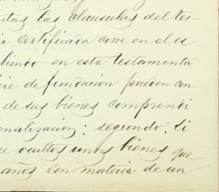 ntas las clausulas del tes-
ia certificada com en el es
biendo en este testamenta
cie de fundacion pueden con
de sus bienes comprendi
matizacion: segundo: si
ue ocultos unos bienes que
años son materia de un